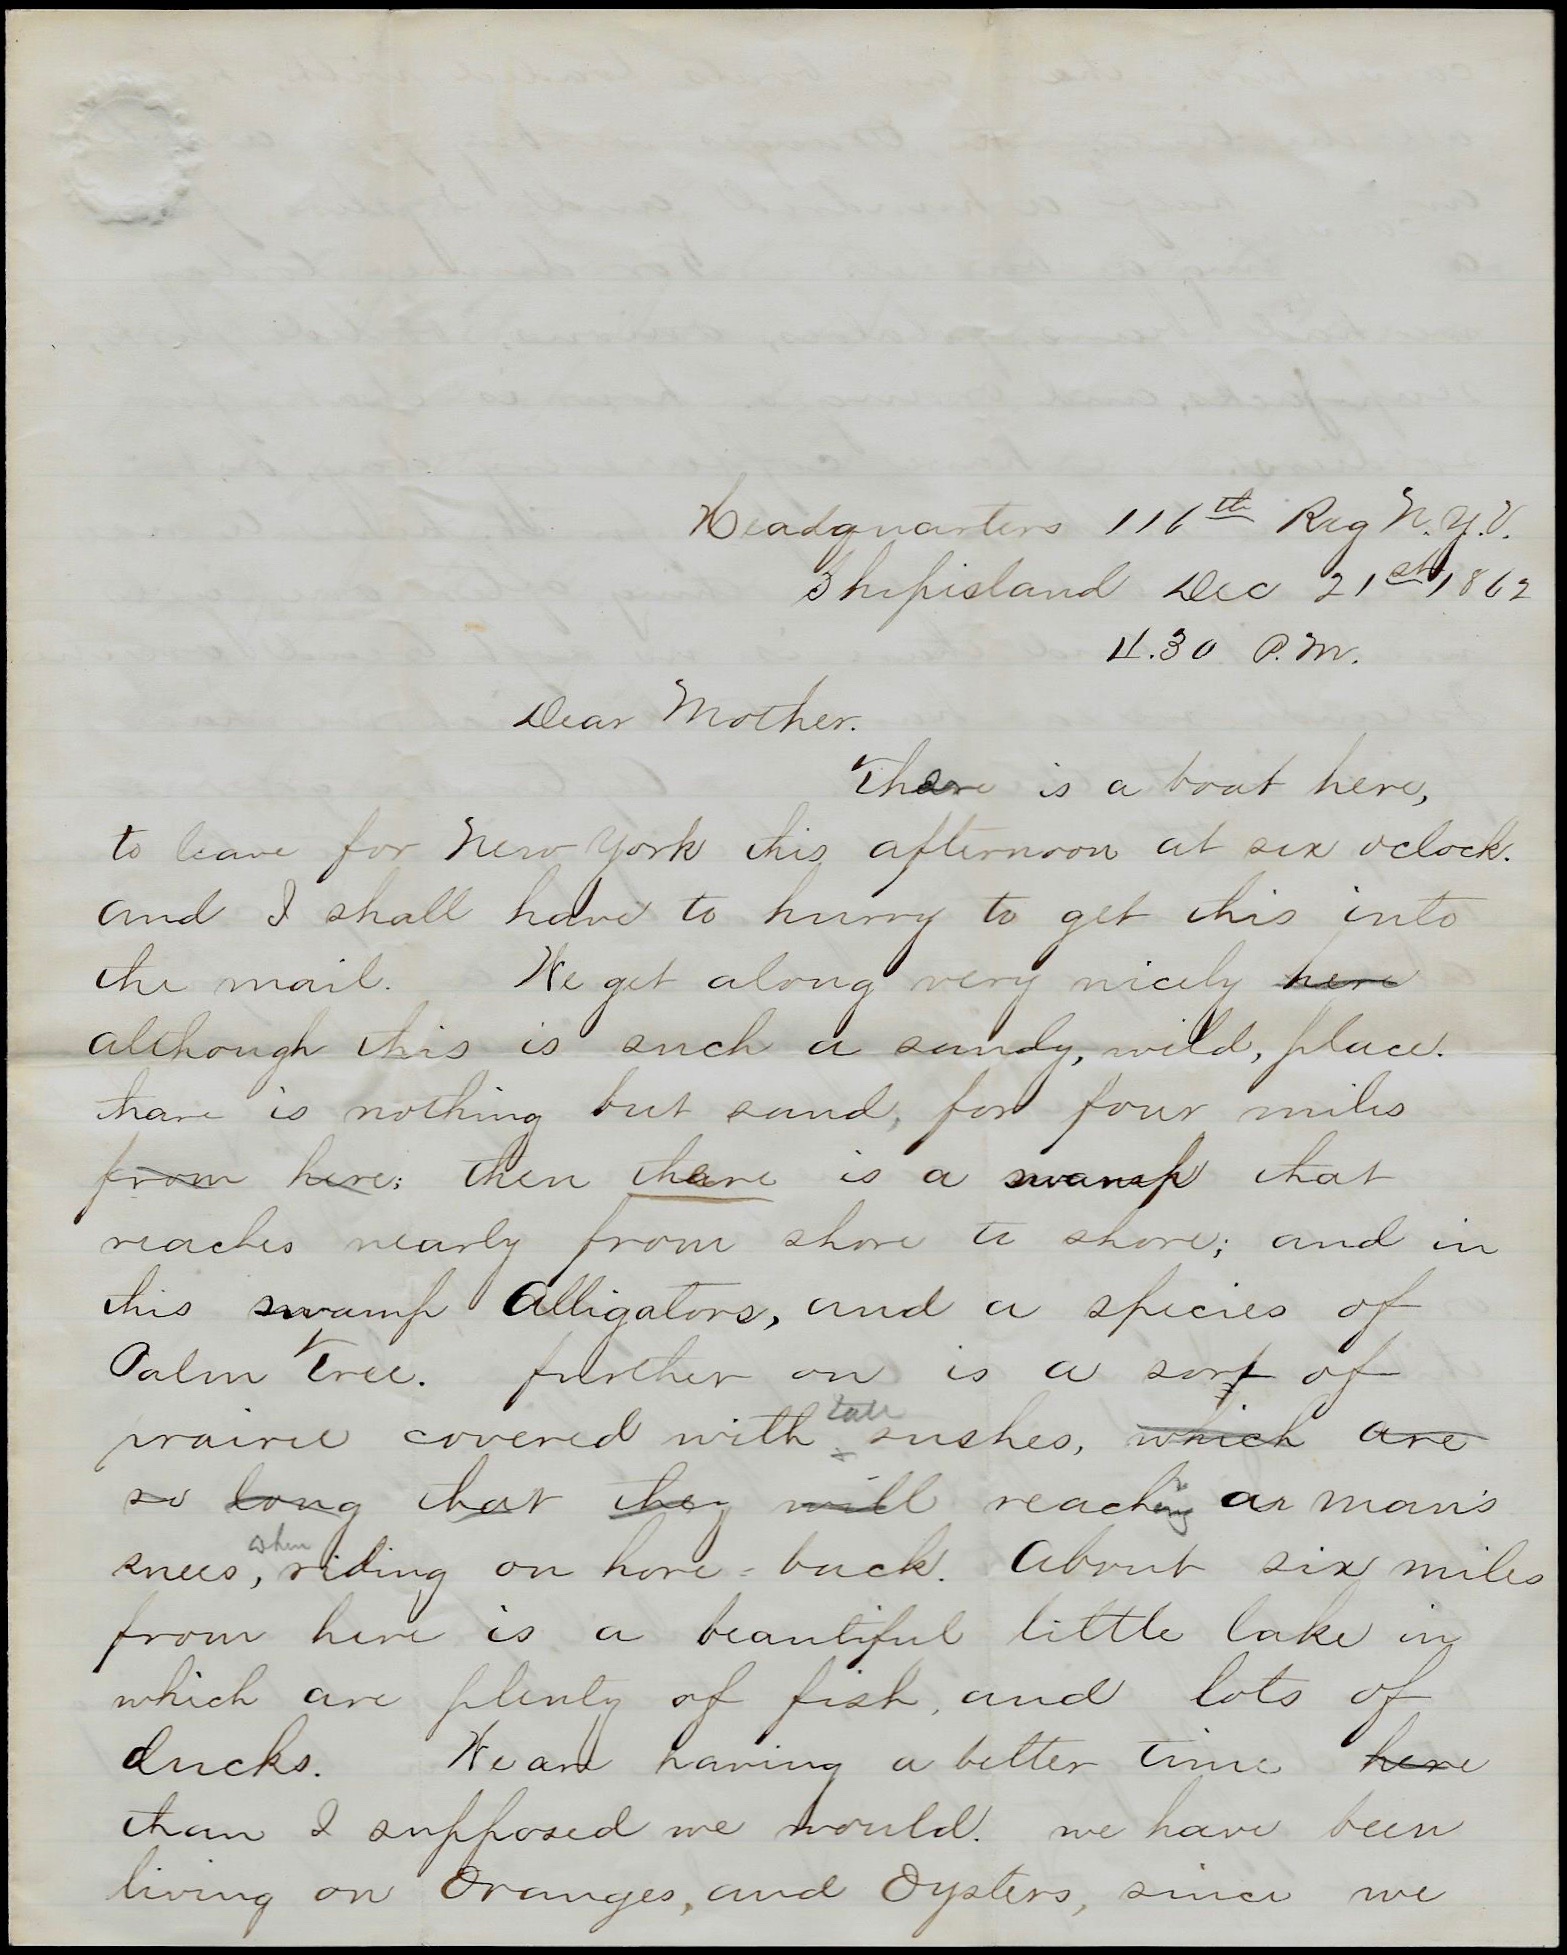 Headquarters 116th Reg N.Y.V.
Shipisland Dec 21st, 1862
4.30 P.M.
Dear Mother.
There is a boat here,
to leave for New York this afternoon at six oclock.
and I shall have to hurry to get this into
the mail. We get along very nicely here
although this is such a sandy, wild, place.
thare is nothing but sand, for four miles
from here; then there is a swamp that
reaches nearly from shore to shore; and in
this swamp Alligators, and a species of
Palm Tree. further on is a sort of
prairie covered with tall rushes, which are
so long that they will reaching a man's
knees, when riding on horse-back. About six miles
from here is a beautiful little lake in
which are plenty of fish, and lots of
ducks. We are having a better time here
than I supposed we would. we have been
living on Oranges, and Oysters, since we